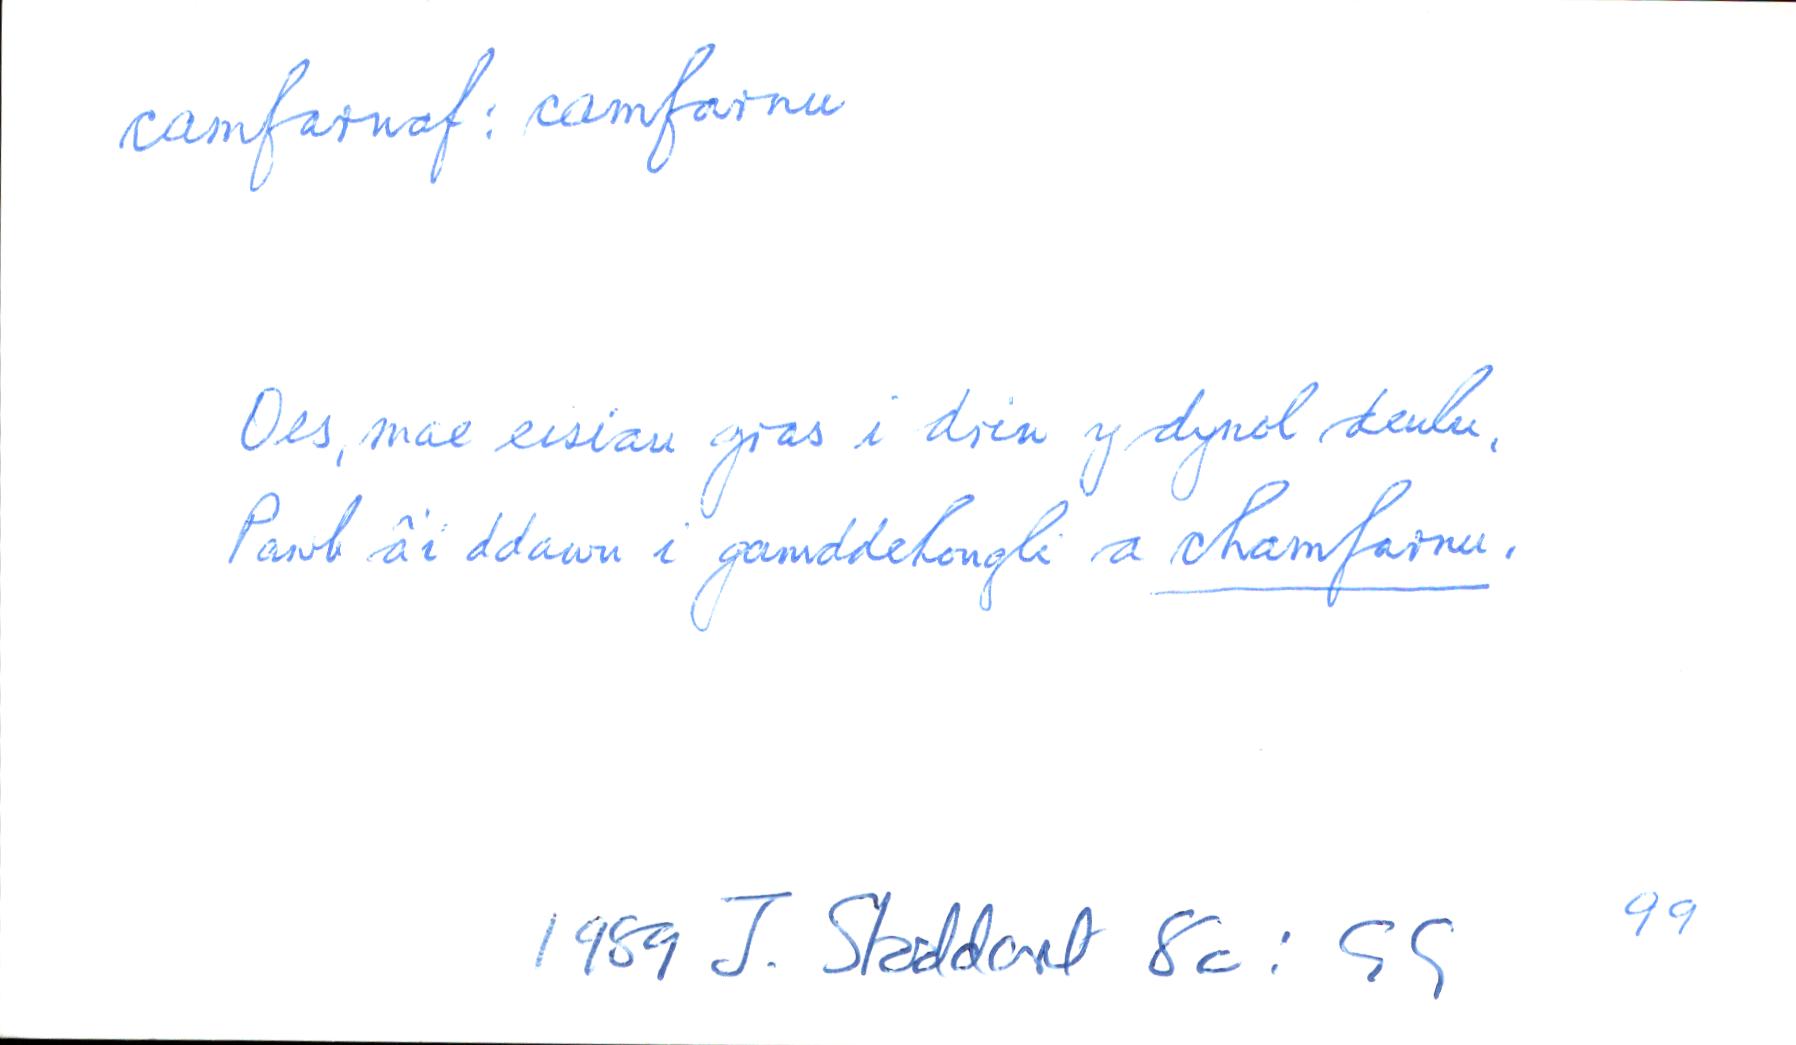 camfarnaf: camfarnu
Oes, mae eisiau gras i drin y dynol deulu.
Pawb â'i ddawn i gamddehongli a chamfarnu.
1989 J. Stoddart 8c: SS 99